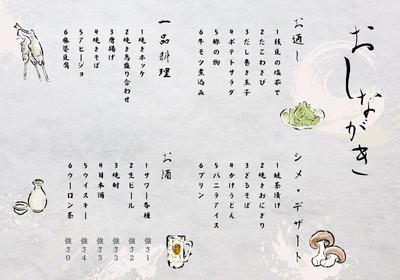 おしながき
お通し
1枝豆の塩茹で
2たこわさび
3だし巻き玉子
4ポテトサラダ
5酢の物
6牛モツ煮込み
一品料理
1焼きホッケ
2焼き鳥盛り合わせ
3唐揚げ
4焼きそば
5アヒージョ
6麻婆豆腐
シメ・デザート
1鮭茶漬け
2焼きおにぎり
3ざるそば
4かけうどん
5バニラアイス
6プリン
お酒
1サワー各種 強さ1
2生ビール 強さ3
3焼酎 強さ3
4日本酒 強さ3
5ウイスキー 強さ4
6ウーロン茶 強さ0